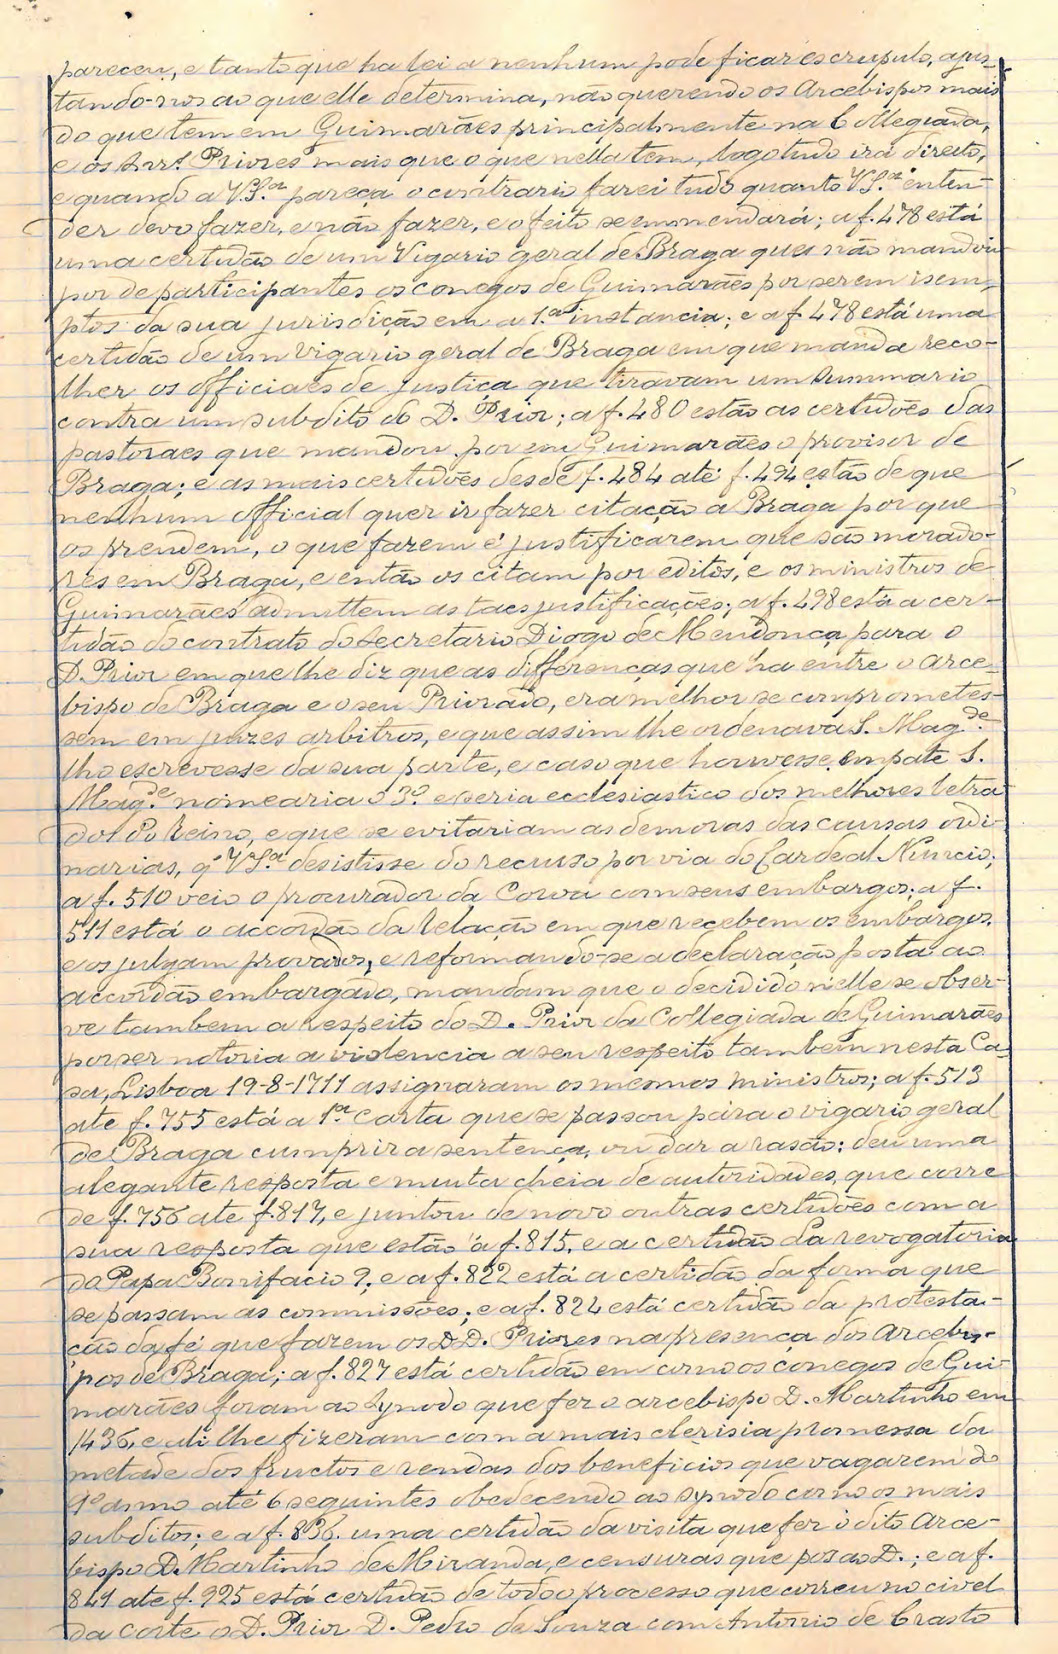 pareceu, e tanto que ha lei a nenhum pode ficar escrupulo, ajus-
tando-nos ao que elle determina, não querendo os Arcebispos mais
do que tem em Guimarães principalmente na Collegiada,
e os Snrs. Priores mais que o que nella tem, logo tudo irá direito,
e quando a V.Sª. pareça o contrario farei tudo quanto V.Sª. enten-
der devo fazer, e não fazer, e o feito se emmendará; a f. 478 está
uma certidão de um Vigario geral de Braga que não mandou
por de participantes os conegos de Guimarães por serem isem-
ptos da sua jurisdição em a 1.ª instancia; e a f 478 está uma
certidão de um vigario geral de Braga em que manda reco-
lher os officiaes de justiça que tiravam um summario
contra um subdito do D. Prior; a f. 480 estão as certidões das
pastoraes que mandou por em Guimarães o provisor de
Braga; e as mais certidões desde f. 484 até f. 494 estão de que
nenhum official quer ir fazer citação a Braga por que
os prendem, o que fazem é justificarem que são morado-
res em Braga, e então os citam por editos, e os ministros de
Guimarães admittem as taes justificações; a f. 498 está a cer-
tidão do contrato do Secretario Diogo de Mendonça para o
D. Prior em que lhe diz que as differenças que ha entre o Arce-
bispo de Braga e o seu Priorado, era melhor se comprometes-
sem em juizes arbitros, e que assim lhe ordenava S. Mag.de
lho escrevesse da sua parte, e caso que houvesse empate S.
Mag.de nomearia o 3º e seria ecclesiastico dos melhores letra-
dos do Reino, e que se evitariam as demoras das causas ordi-
narias, q' V Sª. desistisse do recurso por via do Cardeal Nuncio;
a f. 510 veio o procurador da Coroa com seus embargos; a f.
511 está o accordão da Relação em que recebem os embargos,
e os julgam provados, e reformando-se a declaração posta ao
accordão embargado, mandam que o decidido nelle se obser-
ve tambem a respeito do D. Prior da Collegiada de Guimarães
por ser notoria a violencia a seu respeito tambem nesta Ca-
sa, Lisboa 19-8-1711 assignaram os mesmos ministros; a f. 513
ate f. 755 está a 1ª Carta que se passou para o vigario geral
de Braga cumprir a sentença, ou dar a rasão: deu uma
alegante resposta e munta cheia de autoridades, que corre
de f. 756 ate f. 817, e juntou de novo outras certidões com a
sua resposta que estão a f. 815, e a certidão da revogatoria
do Papa Bonifacio 9; e a f. 822 está a certidão da forma que
se passam as commissões; e a f. 824 está certidão da protesta-
cão da fé que fazem os DD. Priores na presença dos Arcebis-
pos de Braga; a f. 827 está certidão em como os conegos de Gui-
marães foram ao Synodo que fez o arcebispo D. Martinho em
1436, e ali lhe fizeram com a mais clerisia promessa da
metade dos fructos e rendas dos beneficios que vagarem do
1º anno até 6 seguintes obedecendo ao synodo como os mais
subditos; e a f. 836. uma certidão da visita que fez o dito Arce-
bispo D. Martinho de Miranda, e censuras que pos ao D.; e a f.
841 ate f. 925 está certidão de todo o processo que correu no civel
da corte o D. Prior D. Pedro de Souza com Antonio de Crasto